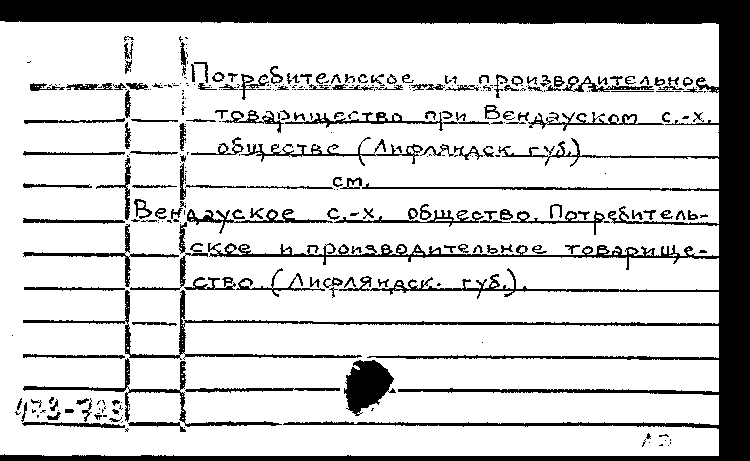 Потребительское и производительное
товарищество при Вендауском с.-х.
обществе (Лифляндск. губ.)
см.
Вендауское с.-х. общество. Потребитель-
ское и производительное товарище-
ство. (Лифляндск. губ.).
473-723